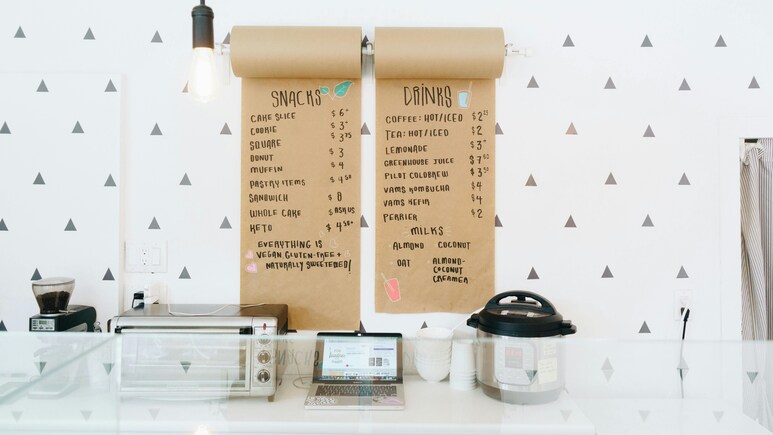 SNACKS
CAKE SLICE $6+
COOKIE $3+
SQUARE $3.75
DONUT $3
MUFFIN $4
PASTRY ITEMS $4.50
SANDWICH $8
WHOLE CAKE $ASK US
KETO $4.50+
EVERYTHING IS
VEGAN, GLUTEN-FREE +
NATURALLY SWEETENED!
DRINKS
COFFEE: HOT/ICED
TEA: HOT/ICED $2
LEMONADE $3+
GREENHOUSE JUICE
PILOT COLDBREW $3.50
VAMS KOMBUCHA $4
VAMS KEFIR $4
PERRIER $2
MILKS
ALMOND COCONUT
OAT ALMOND-
COCONUT
CREAMER